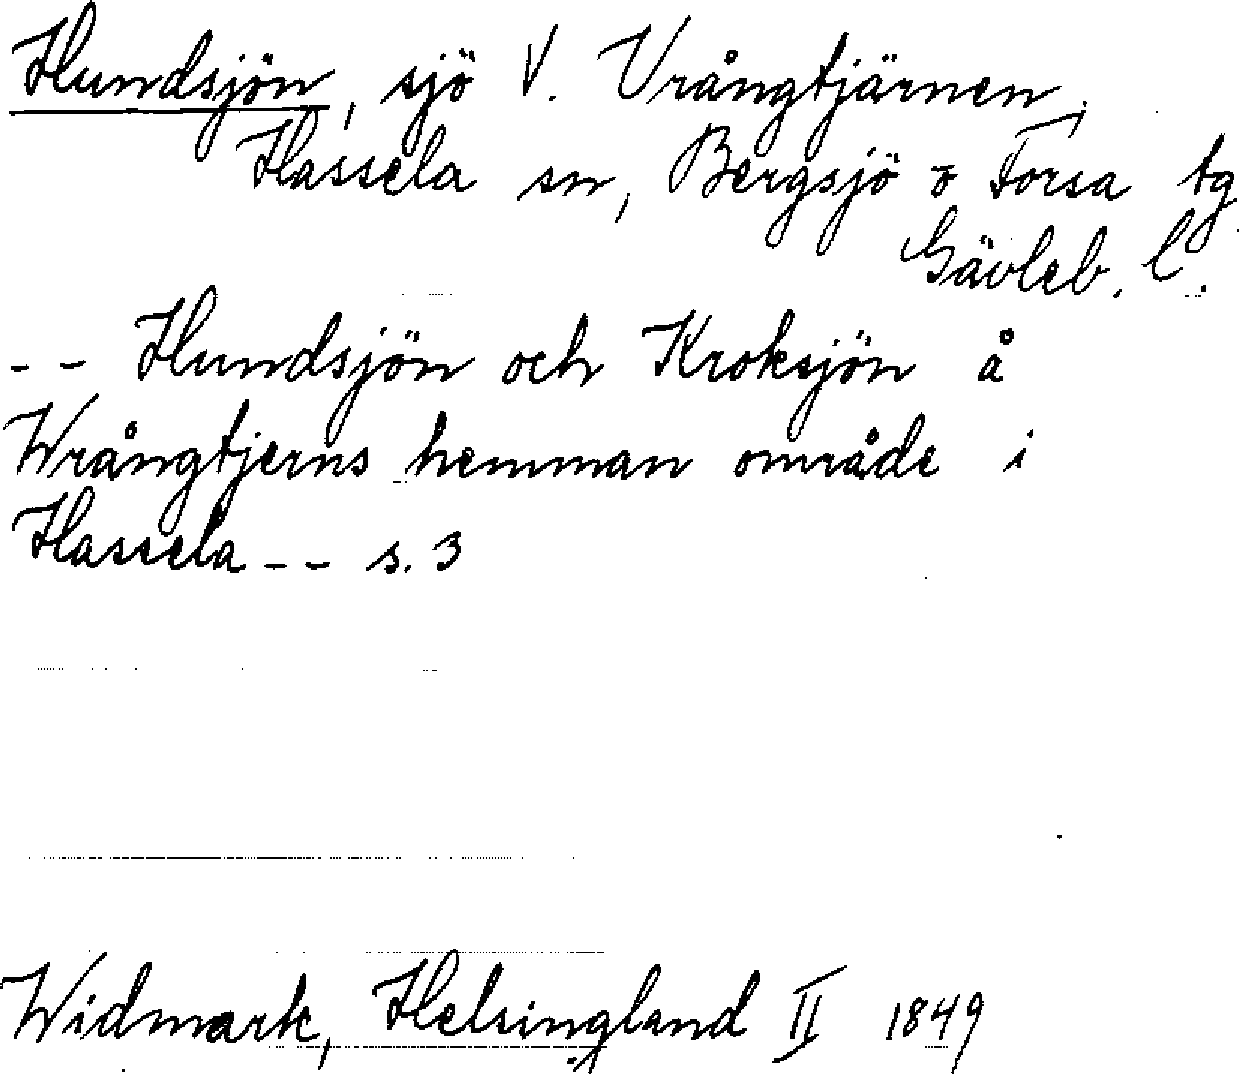 Hundsjön, sjö V. Vrångtjärnen,
Hassela sn, Bergsjö o Forsa tg
Gävleb. l.
-- Hundsjön och Kroksjön å
Wrångtjerns hemman område i
Hassela -- s. 3
Widmark, Helsingland II 1849